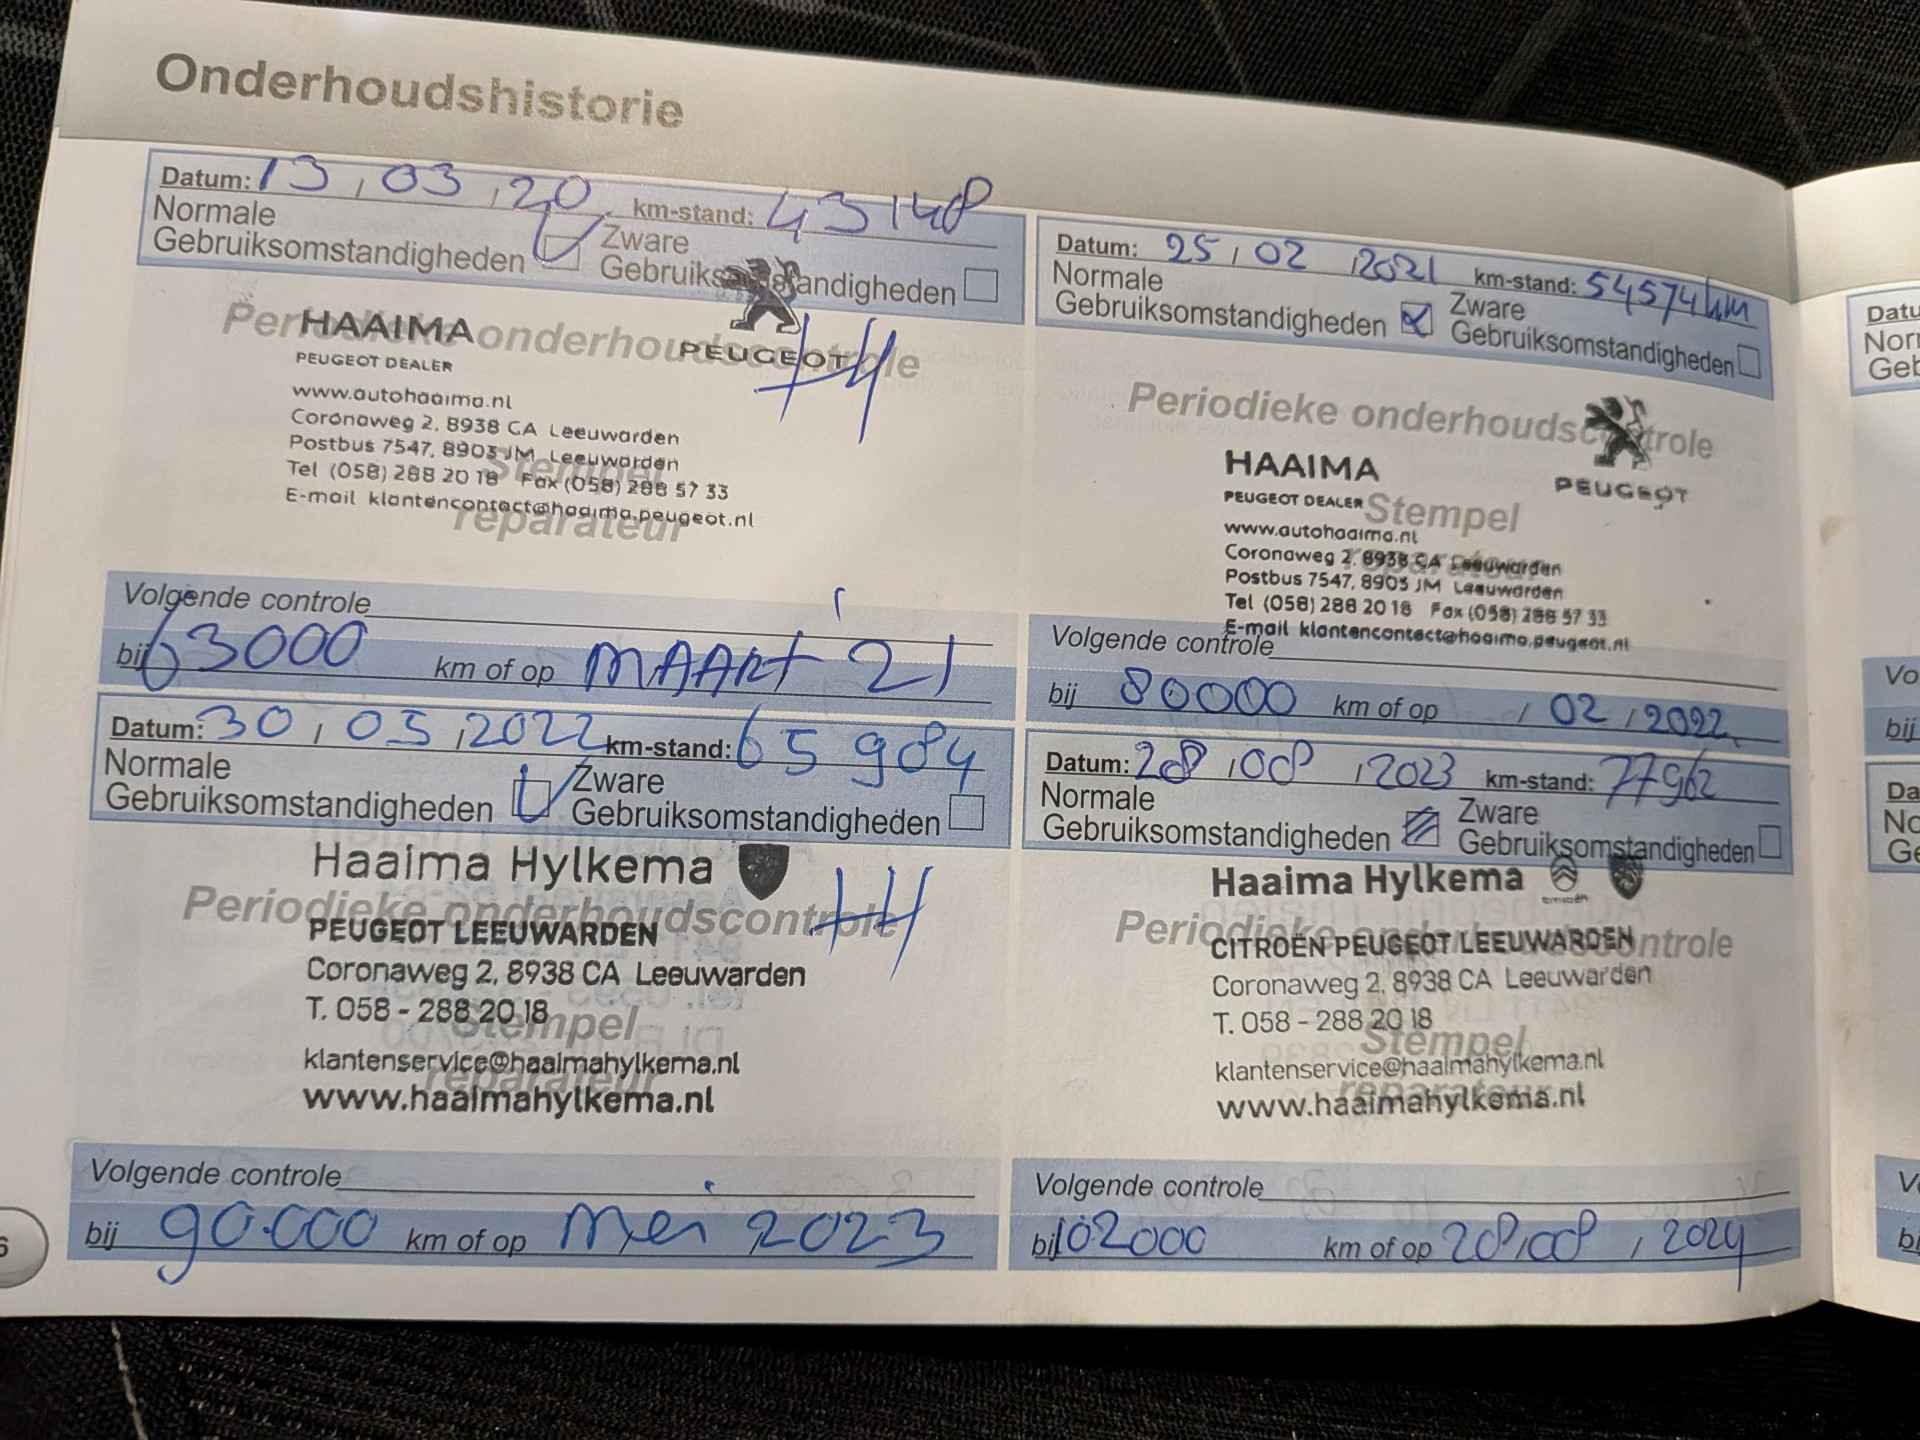 Onderhoudshistorie
Datum: 13,03,20 km-stand: 43148
Normale
Gebruiksomstandigheden
Zware
Gebruiksomstandigheden
Periodieke onderhoudscontrole
HAAIMA
PEUGEOT DEALER
PEUGEOT
www.autohaaima.nl
Coronaweg 2, 8938 CA Leeuwarden
Postbus 7547, 8903 JM Leeuwarden
Tel (058) 288 20 18 Fax (058) 288 57 33
E-mail klantencontact@haaima.peugeot.nl
Stempel
reparateur
Volgende controle
bij 63000 km of op MAART '21
Datum: 25,02,2021 km-stand: 54574km
Normale
Gebruiksomstandigheden
Zware
Gebruiksomstandigheden
Periodieke onderhoudscontrole
HAAIMA
PEUGEOT DEALER
PEUGEOT
Stempel
reparateur
www.autohaaima.nl
Coronaweg 2, 8938 CA Leeuwarden
Postbus 7547, 8903 JM Leeuwarden
Tel (058) 288 20 18 Fax (058) 288 57 33
E-mail klantencontact@haaima.peugeot.nl
Volgende controle
bij 80000 km of op , 02 , 2022
Datum: 30,05,2022 km-stand: 65984
Normale
Gebruiksomstandigheden
Zware
Gebruiksomstandigheden
Haaima Hylkema
Periodieke onderhoudscontrole
PEUGEOT LEEUWARDEN
Coronaweg 2, 8938 CA Leeuwarden
T. 058 - 288 20 18
Stempel
klantenservice@haaimahylkema.nl
reparateur
www.haaimahylkema.nl
Volgende controle
bij 90.000 km of op mei 2023
Datum: 28,08,2023 km-stand: 77962
Normale
Gebruiksomstandigheden
Zware
Gebruiksomstandigheden
Haaima Hylkema
Periodieke onderhoudscontrole
CITROËN PEUGEOT LEEUWARDEN
Coronaweg 2, 8938 CA Leeuwarden
T. 058 - 288 20 18
Stempel
klantenservice@haaimahylkema.nl
reparateur
www.haaimahylkema.nl
Volgende controle
bij 102000 km of op 28,08,2024
6